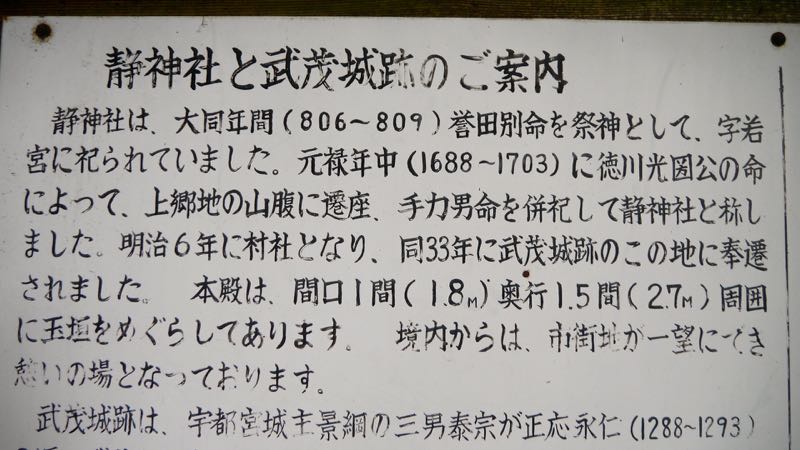 静神社と武茂城跡のご案内
静神社は、大同年間(806~809)誉田別命を祭神として、字若
宮に祀られていました。元禄年中(1688~1703)に徳川光圀公の命
によって、上郷地の山腹に遷座、手力男命を併祀して静神社と称し
ました。明治6年に村社となり、同33年に武茂城跡のこの地に奉遷
されました。 本殿は、間口1間(1.8M)奥行1.5間(2.7M)周囲
に玉垣をめぐらしてあります。 境内からは、市街地が一望にでき
憩いの場となっております。
武茂城跡は、宇都宮城主景綱の三男泰宗が正応永仁(1288~1293)